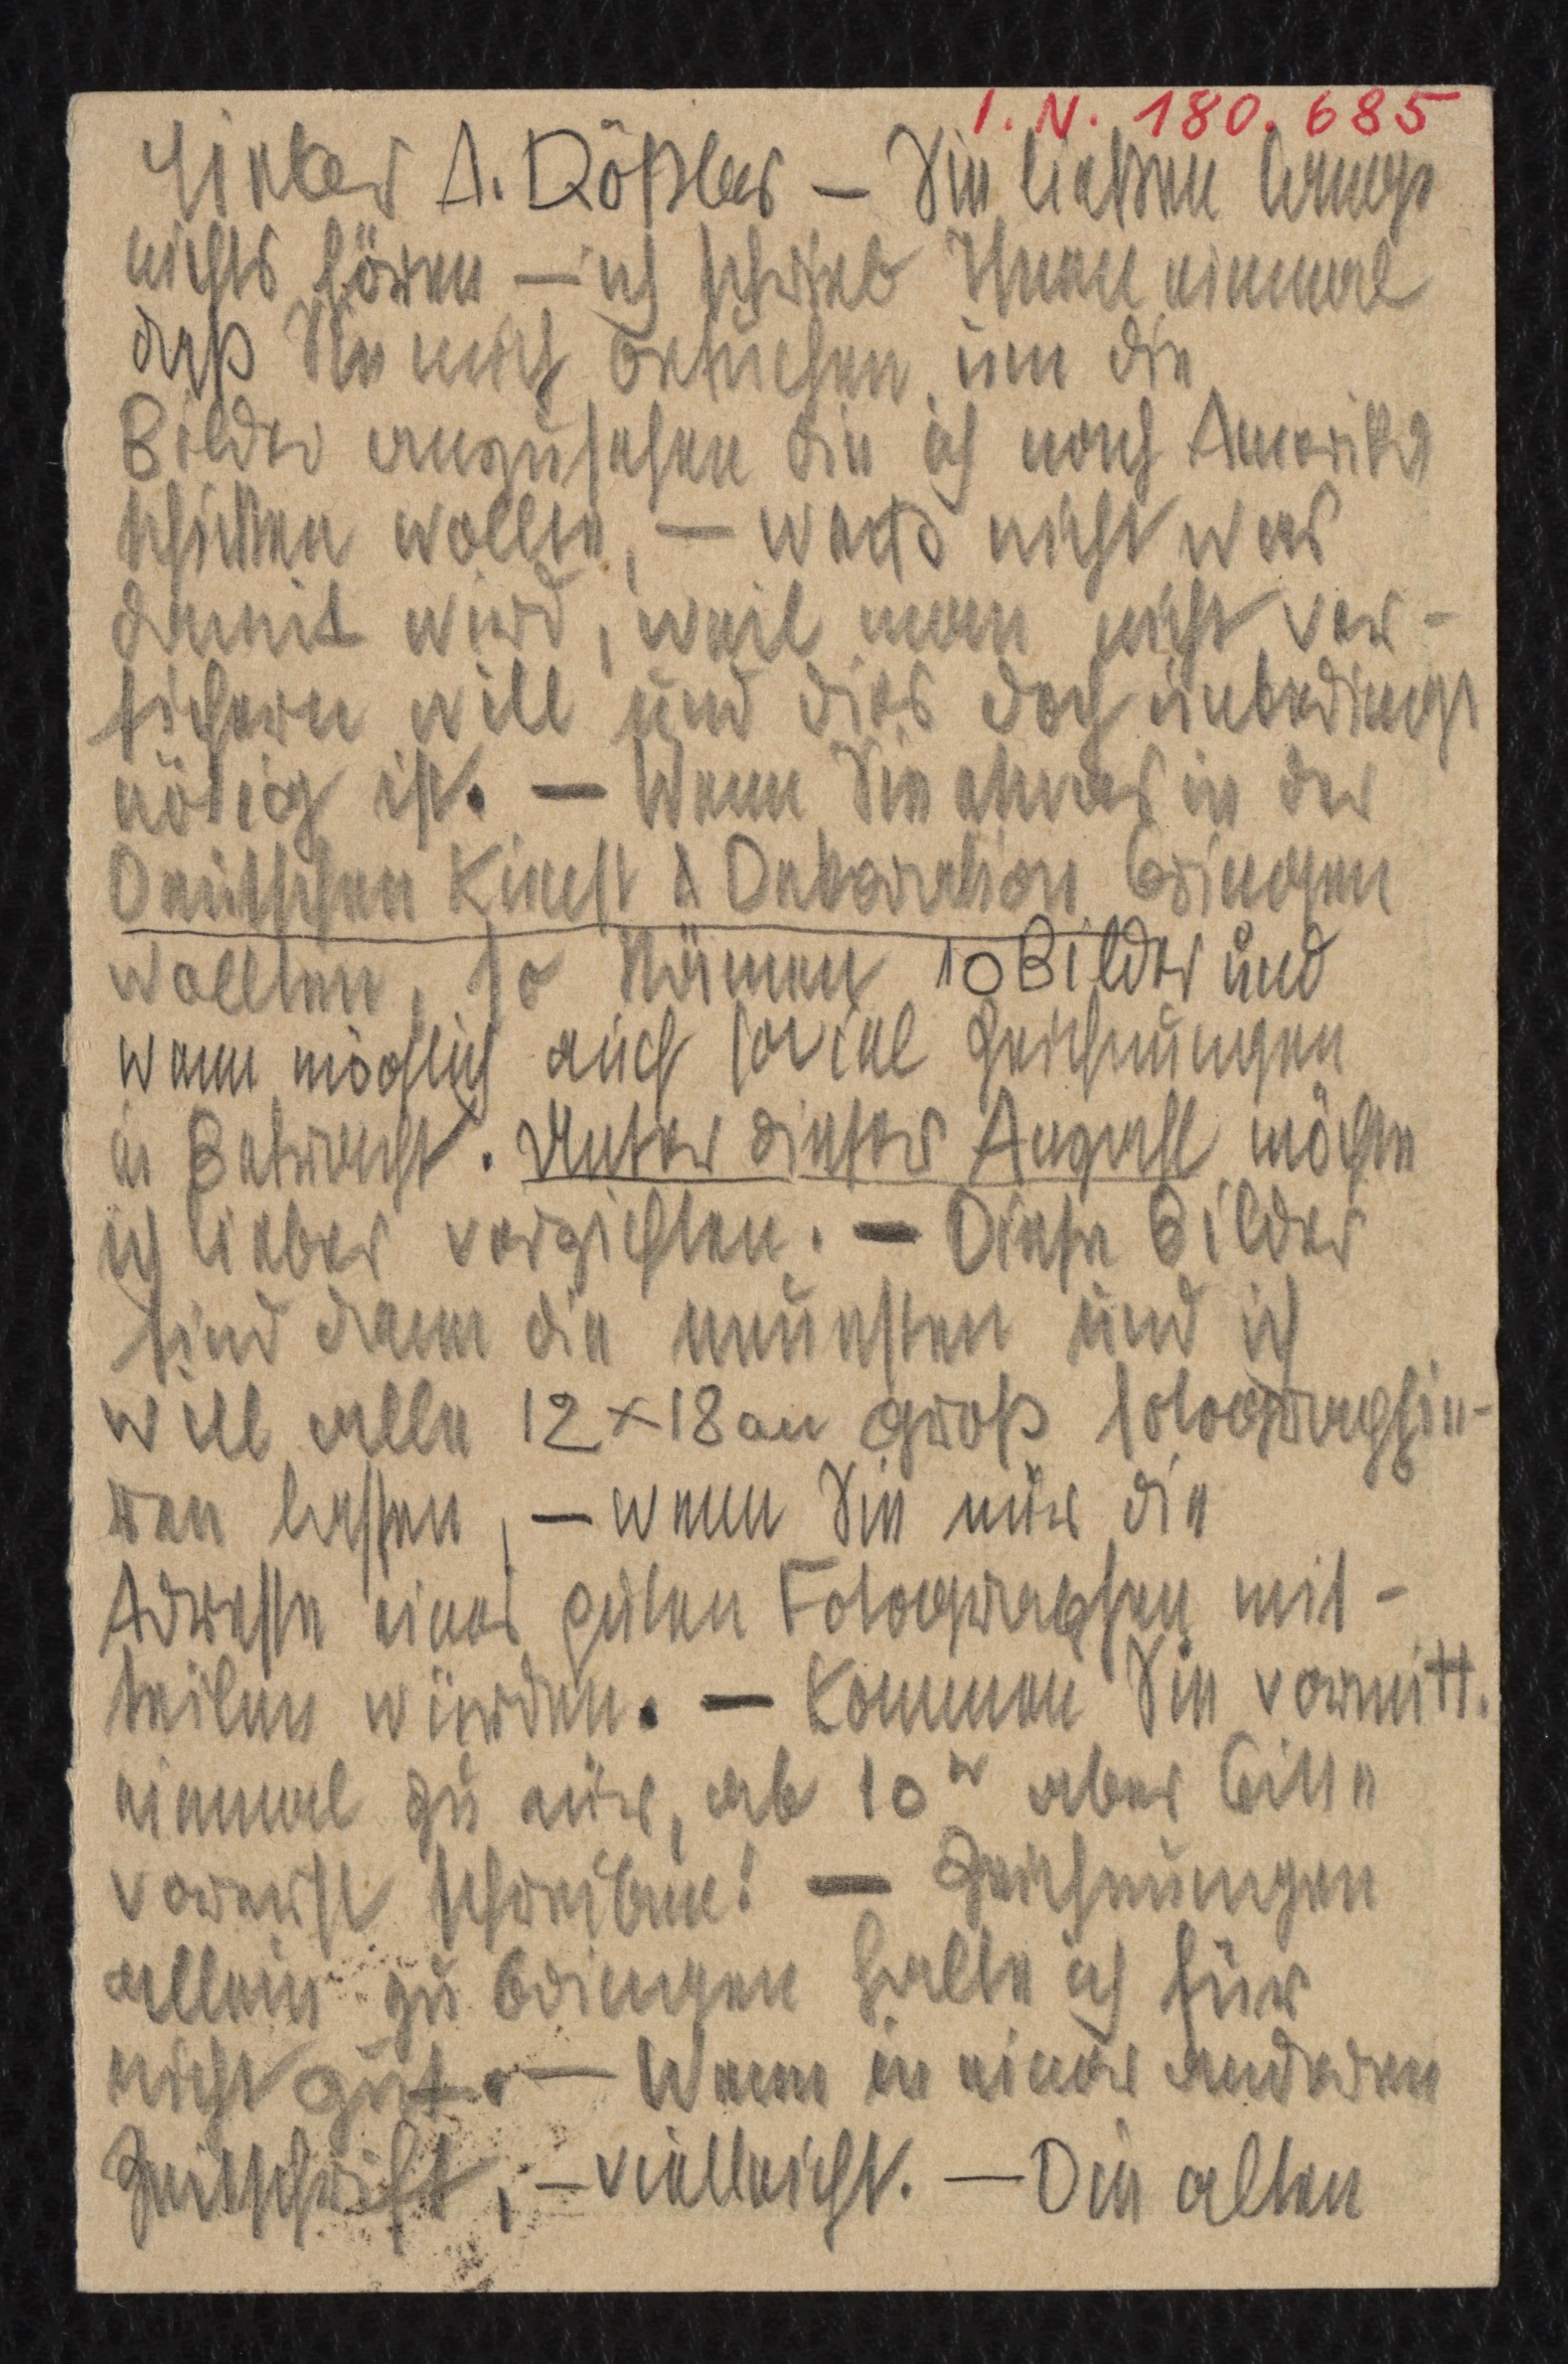 I. N. 180.685
Lieber A. Rößler — Sie ließen lange
nichts hören — ich schrieb Ihnen einmal
daß Sie mich besuchen um die
Bilder anzusehen die ich nach Amerika
schicken wollte, — weiß nicht was
damit wird, weil man nicht ver-
sichern will und dies doch unbedingt
nötig ist. — Wenn Sie etwas in der
Deutschen Kunst & Dekoration bringen
wollten, so kämen 10 Bilder und
wenn möglich auch soviel Zeichnungen
in Betracht. Unter dieser Anzahl möchte
ich lieber verzichten. — Diese Bilder
sind dann die neuesten und ich
will alle 12 × 18 cm groß fotographie-
ren lassen, — wenn Sie mir die
Adresse eines guten Fotographen mit-
teilen würden. — Kommen Sie vormitt.
einmal zu mir, ab 10 aber bitte
vorerst schreiben! — Zeichnungen
allein zu bringen halte ich für
nicht gut. — Wenn in einer anderen
Zeitschrift, — vielleicht. — Die alten